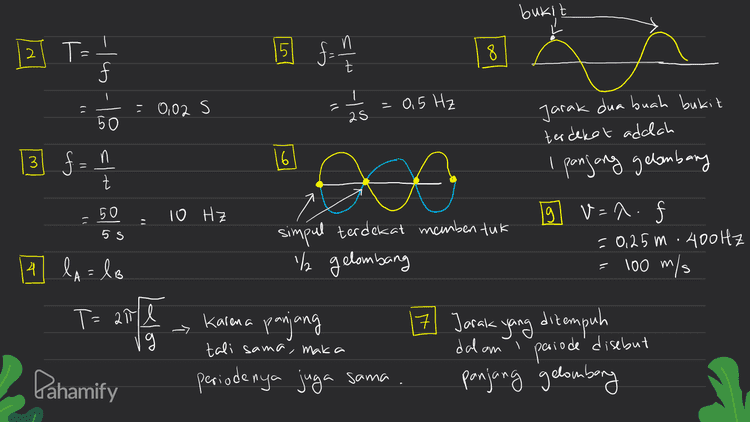 2 T = 1/f
= 1/50 = 0,02 S
3 f = n/t
= 50/5 s = 10 Hz
4 lA = lB
T = 2π√(l/g) → Karena panjang
tali sama, maka
periodenya juga sama.
5 f = n/t
= 1/2S = 0,5 Hz
6
simpul terdekat membentuk
1/2 gelombang
7 Jarak yang ditempuh
dalam 1 periode disebut
panjang gelombang
8 bukit
Jarak dua buah bukit
terdekat adalah
1 panjang gelombang
9 v = λ . f
= 0,25 m . 400 Hz
= 100 m/s
Pahamify